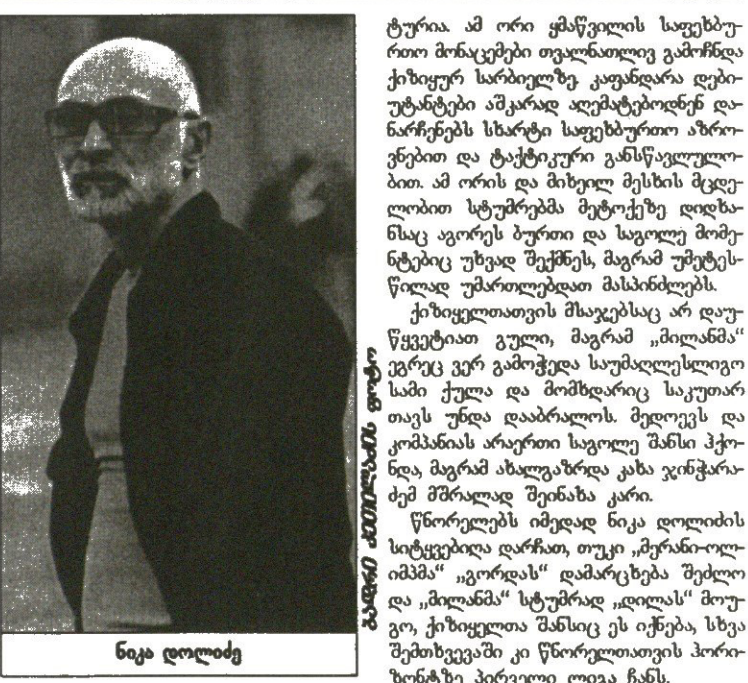 ტურია. ამ ორი ყმაწვილის საფეხბუ-
რთო მონაცემები თვალნათლივ გამოჩნდა
ქიზიყურ სარბიელზე. კაფანდარა დები-
უტანტები აშკარად აღემატებოდნენ და-
ნარჩენებს სხარტი საფეხბურთო აზრო-
ვნებით და ტაქტიკური განსწავლულო-
ბით. ამ ორის და მიხეილ მესხის მცდე-
ლობით სტუმრებმა მეტოქეზე დიდხა-
ნსაც აგორეს ბურთი და საგოლე მომე-
ნტებიც უხვად შექმნეს, მაგრამ უმეტეს-
წილად უმართლებდათ მასპინძლებს.
ქიზიყელთათვის მსაჯებსაც არ დაუ-
წყვეტიათ გული, მაგრამ „მილანმა“
ეგრეც ვერ გამოჭედა საუმაღლესლიგო
სამი ქულა და მომხდარიც საკუთარ
თავს უნდა დააბრალოს. მედოევს და
კომპანიას არაერთი საგოლე შანსი ჰქო-
ნდა, მაგრამ ახალგაზრდა კახა ჯინჭარა-
ძემ მშრალად შეინახა კარი.
წნორელებს იმედად ნიკა დოლიძის
სიტყვებიღა დარჩათ, თუკი „მერანი-ოლ-
იმპმა“ „გორდას“ დამარცხება შეძლო
და „მილანმა“ სტუმრად „დილას“ მოუ-
გო, ქიზიყელთა შანსიც ეს იქნება, სხვა
შემთხვევაში კი წნორელთათვის ჰორი-
ზონტზე პირველი ლიგა ჩანს.
ფოტო
ნიკა დოლიძე